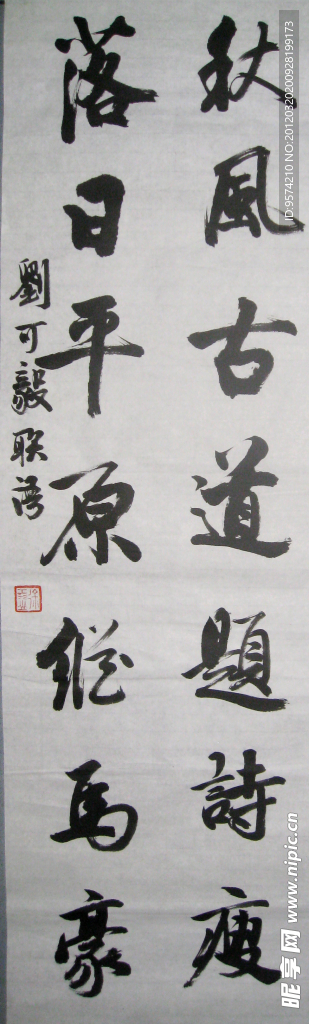 秋風古道題詩瘦
落日平原縱馬豪
劉可毅聯語
ID:9574210 NO:20120320200928199173
昵享网 www.nipic.cn